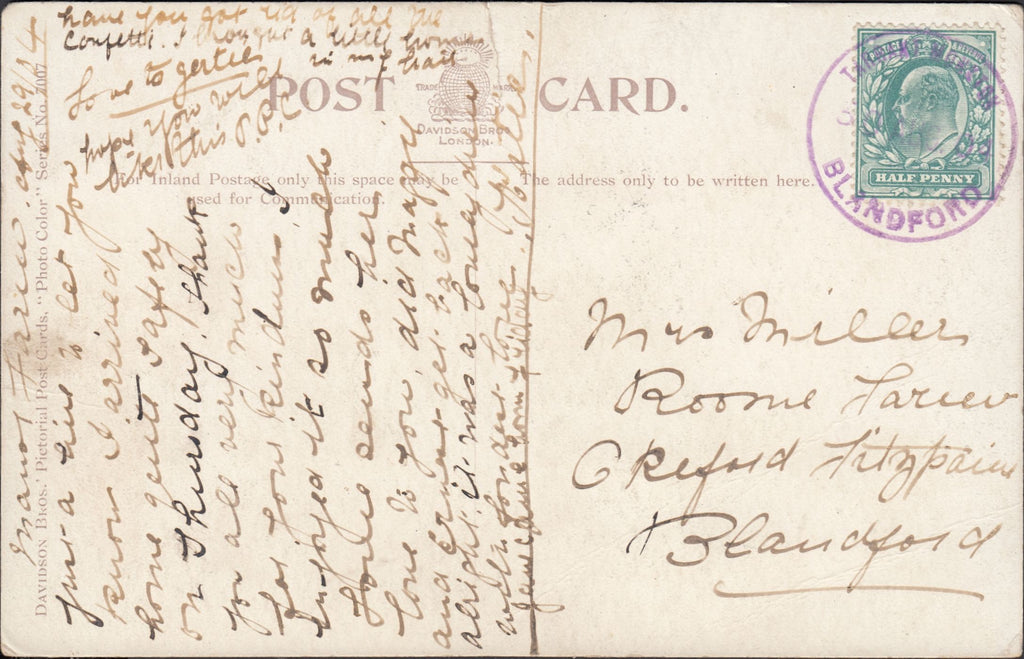 POST CARD.
TRADE MARK
DAVIDSON BROS
LONDON.
For Inland Postage only this space may be
used for Communication.
The address only to be written here.
POSTAGE & REVENUE
HALF PENNY
BLANDFORD
DAVIDSON BROS.' Pictorial Post Cards. "Photo Color" Series No. 7007
Mrs Miller
Roome Farm
Okeford Fitzpaine
Blandford
Manor Farm
Just a line to let you
know I arrived
home quite safely
on Thursday. Thank
you all very much
for your kindness I
Enjoyed it so much
love to you, did Maggy
and Ernest get back
alright, it was a lovely drive
with fondest love
have you got rid of all the
Confetti. I thought a little home
in my hair
Love to Gertie
hope you will
like this P.P.C